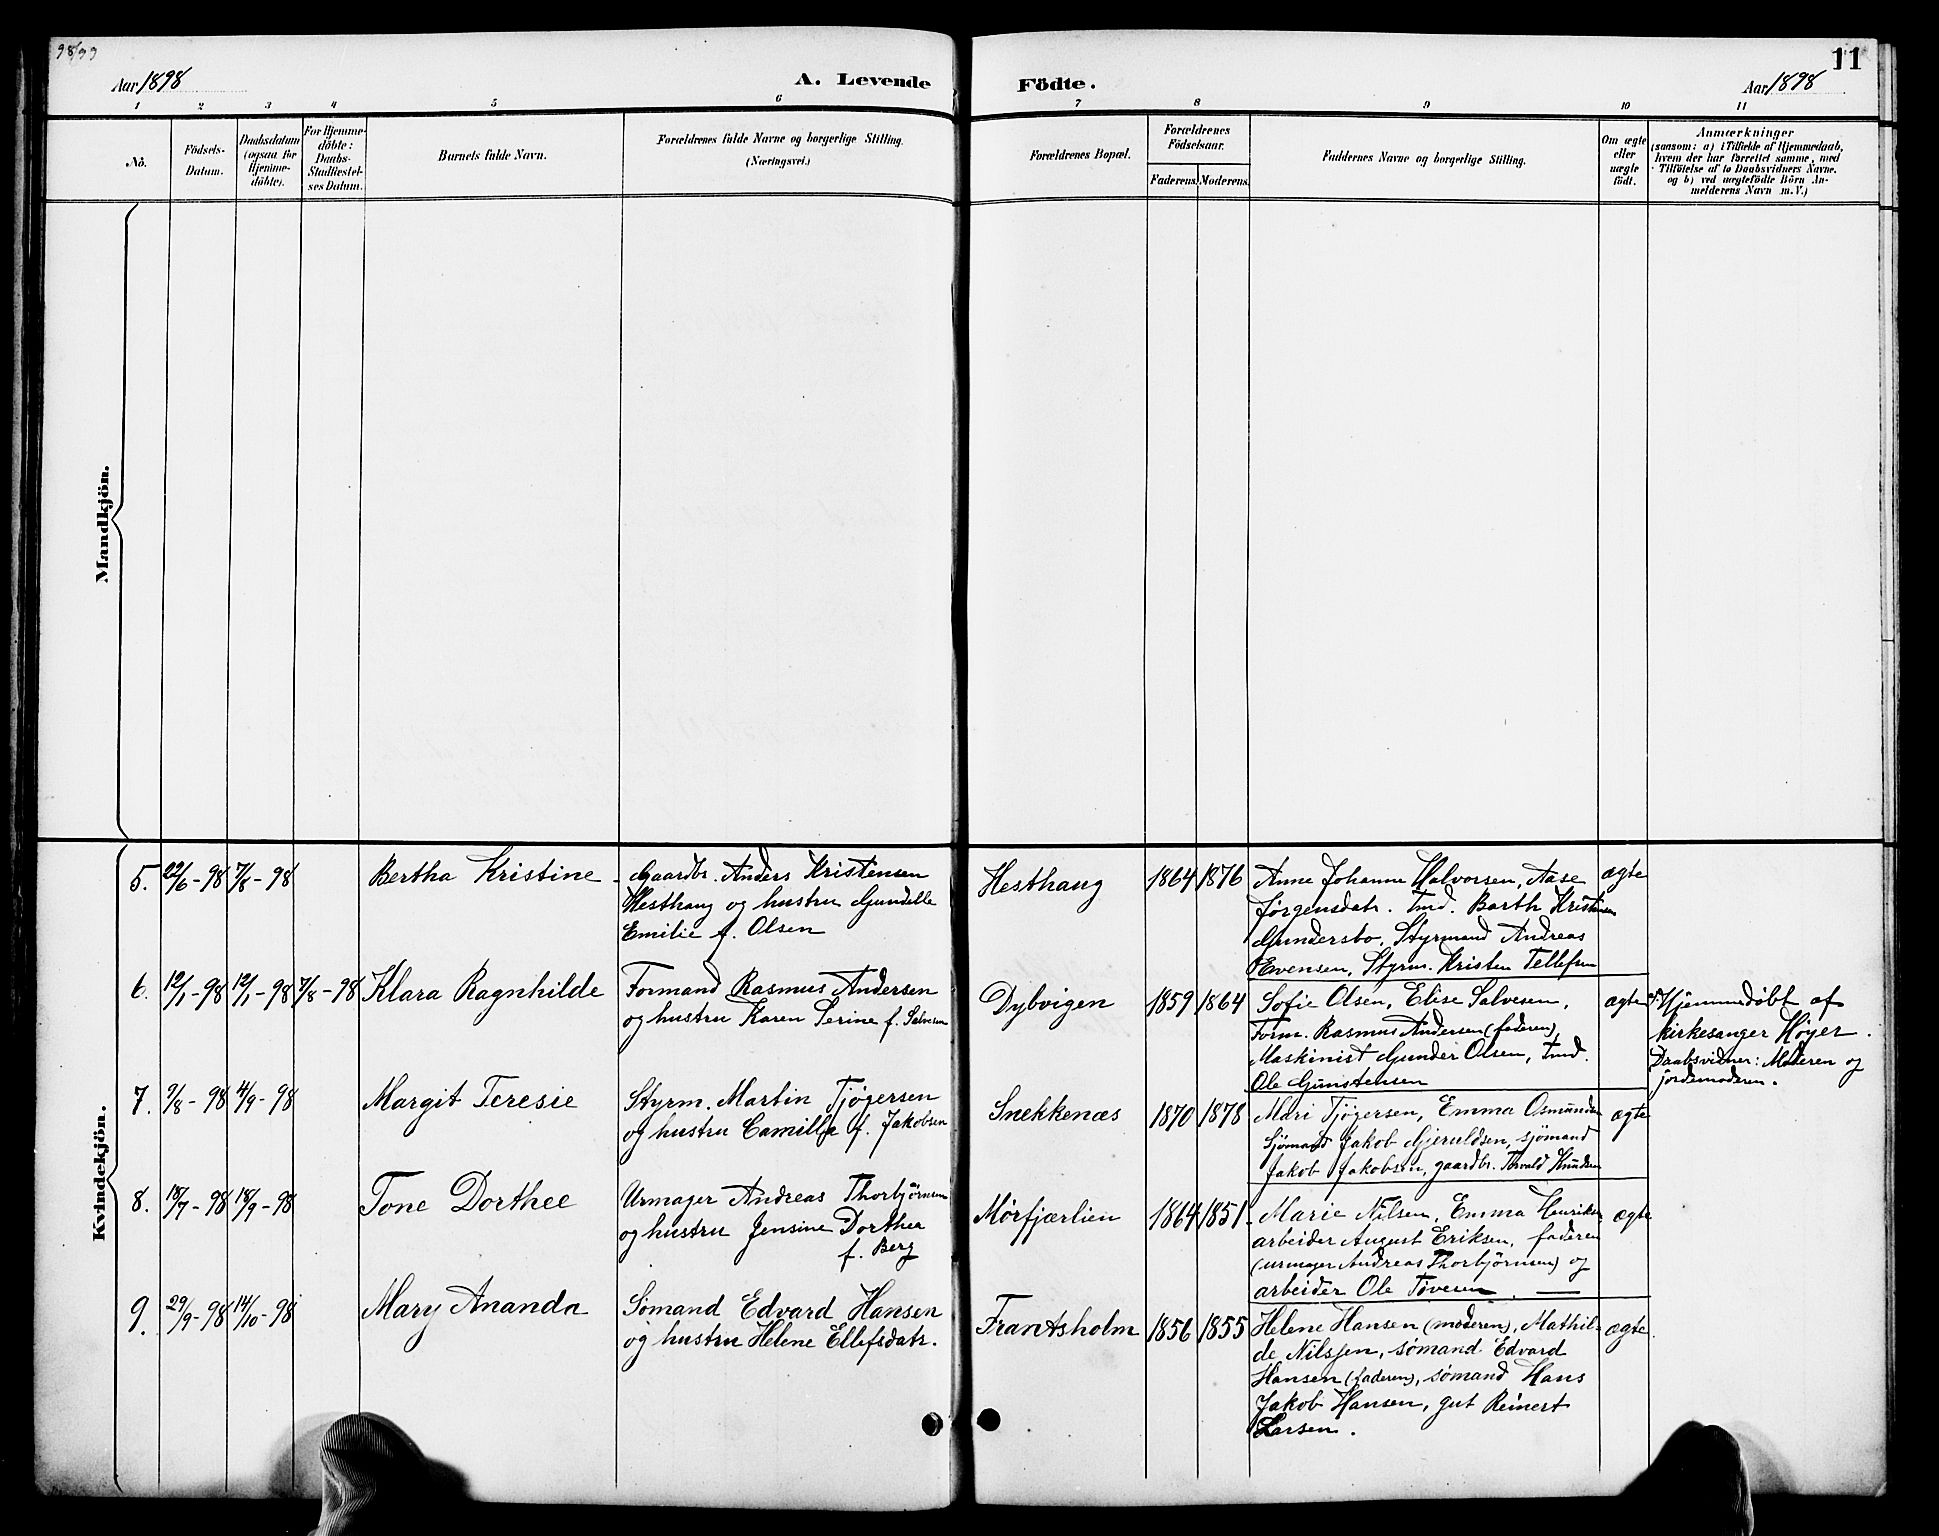 98/99
Aar 1898
A. Levende Födte.
Aar 1898
11
1 2 3 4 5 6 7 8 9 10 11
No.
Födsels-
Datum.
Daabsdatum
(ogsaa for
Hjemme-
döbte).
For Hjemme-
döbte:
Daabs-
Stadfæstel-
ses Datum.
Barnets fulde Navn.
Forældrenes fulde Navne og borgerlige Stilling.
(Næringsvei.)
Forældrenes Bopæl.
Forældrenes
Födselsaar.
Faderens. Moderens.
Faddernes Navne og borgerlige Stilling.
Om ægte
eller
uægte
födt.
Anmærkninger
(saasom: a) i Tilfælde af Hjemmedaab,
hvem der har forrettet samme, med
Tilföielse af to Daabsvidners Navne,
og b) ved uægtefödte Börn An-
melderens Navn m.V.)
Mandkjön.
Kvindekjön.
5. 22/6-98 7/8-98
Bertha Kristine
Gaardbr. Anders Kristensen
Hesthaug og hustru Gundelle
Emilie f. Olsen
Hesthaug
1864 1876
Anne Johanne Halvorsen, Aase
Jørgensdatr. Tmd. Barth Kristensen
Gundersbo, Styrmand Andreas
Evensen, Styrm. Kristen Tellefsen
ægte
6. 12/1-98 12/1-98 7/8-98
Klara Ragnhilde
Formand Rasmus Andersen
og hustru Karen Serine f. Salvesen
Dybvigen
1859 1864
Sofie Olsen, Elise Salvesen,
Form. Rasmus Andersen (faderen),
Maskinist Gunder Olsen, Tmd.
Ole Gunstensen
ægte
Hjemmedøbt af
kirkesanger Høyer.
Daabsvidner: Moderen og
jordemoderen.
7. 9/8-98 4/9-98
Margit Teresie
Styrm. Martin Tjøgersen
og hustru Camilla f. Jakobsen
Snekkenæs
1870 1878
Mari Tjøgersen, Emma Osmundsen
Sjømand Jakob Gjeruldsen, sjømand
Jakob Jakobsen, gaardbr. Torvald Knudsen
ægte
8. 18/7-98 18/9-98
Tone Dorthee
Urmager Andreas Thorbjørnsen
og hustru Jensine Dorthea
f. Berg
Mørfjærlien
1864 1851
Marie Nilsen, Emma Henriksen
arbeider August Eriksen, faderen
(urmager Andreas Thorbjørnsen) og
arbeider Ole Tovesen.
ægte
9. 29/9-98 14/10-98
Mary Ananda
Sømand Edvard Hansen
og hustru Helene Ellefsdatr.
Frantsholm
1856 1855
Helene Hansen (moderen), Mathil-
de Nilssen, sømand Edvard
Hansen (faderen), sømand Hans
Jakob Hansen, gut Reinert
Larsen.
ægte.